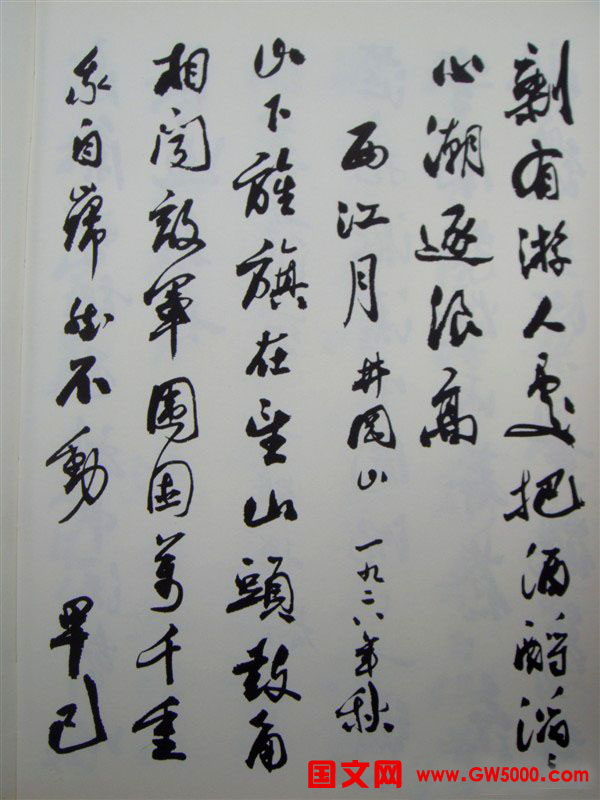 剩有游人處把酒酹滔〻
心潮逐浪高
西江月 井岡山 一九二八年秋
山下旌旗在望山頭鼓角
相聞敌軍围困萬千重
我自巋然不動 早已
国文网 www.GW5000.com